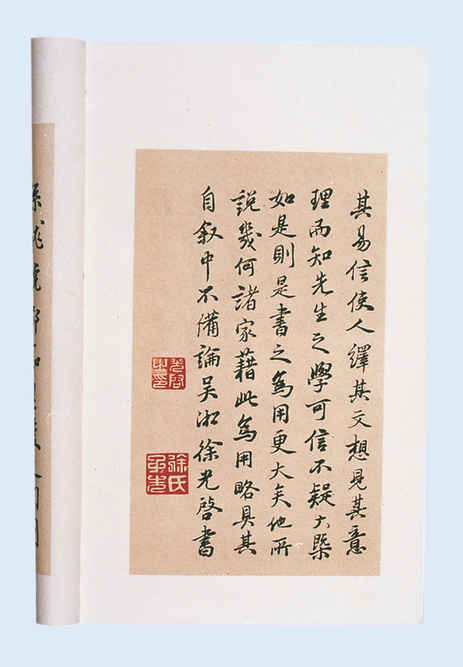 其易信使人繹其文想見其意
理而知先生之學可信不疑大槩
如是則是書之為用更大矣他所
說幾何諸家藉此為用略具其
自叙中不備論吳淞徐光啓書
徐氏子先